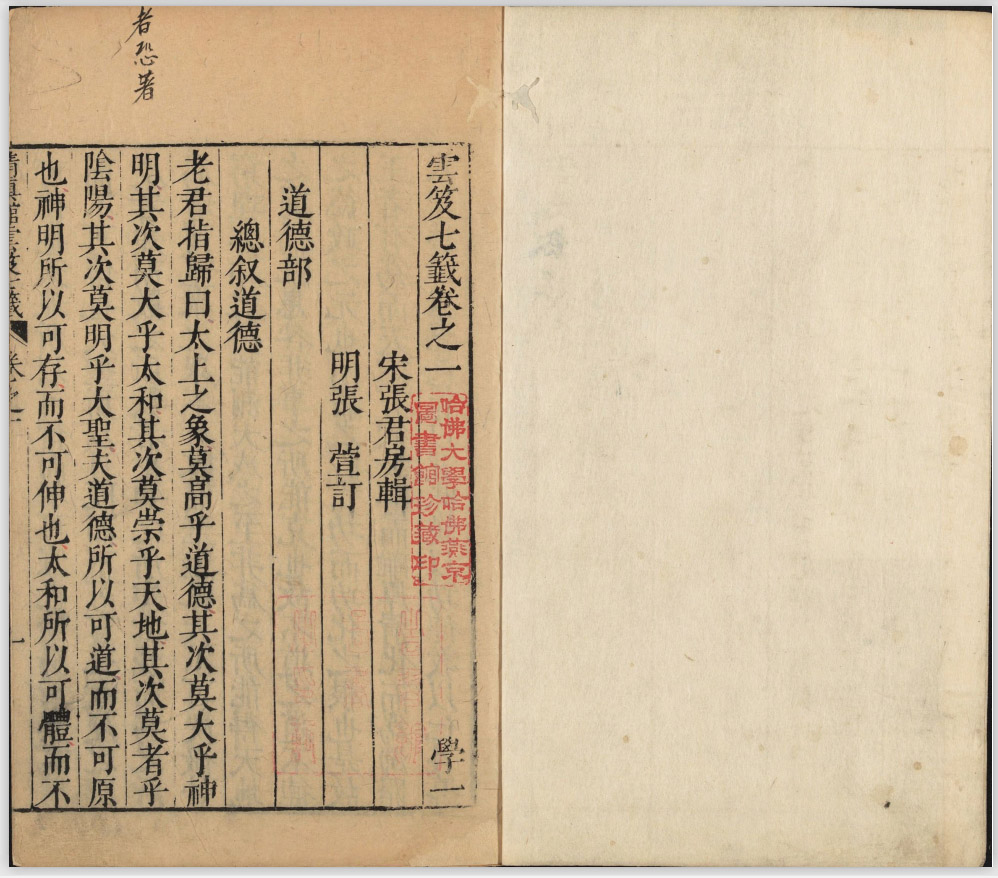 者恐著
雲笈七籤卷之一
學一
宋張君房輯
明張萱訂
道德部
總叙道德
老君指歸曰太上之象莫高乎道德其次莫大乎神
明其次莫大乎太和其次莫崇乎天地其次莫者乎
陰陽其次莫明乎大聖夫道德所以可道而不可原
也神明所以可存而不可伸也太和所以可體而不
卷之一
一
哈佛大學哈佛燕京
圖書館珍藏印